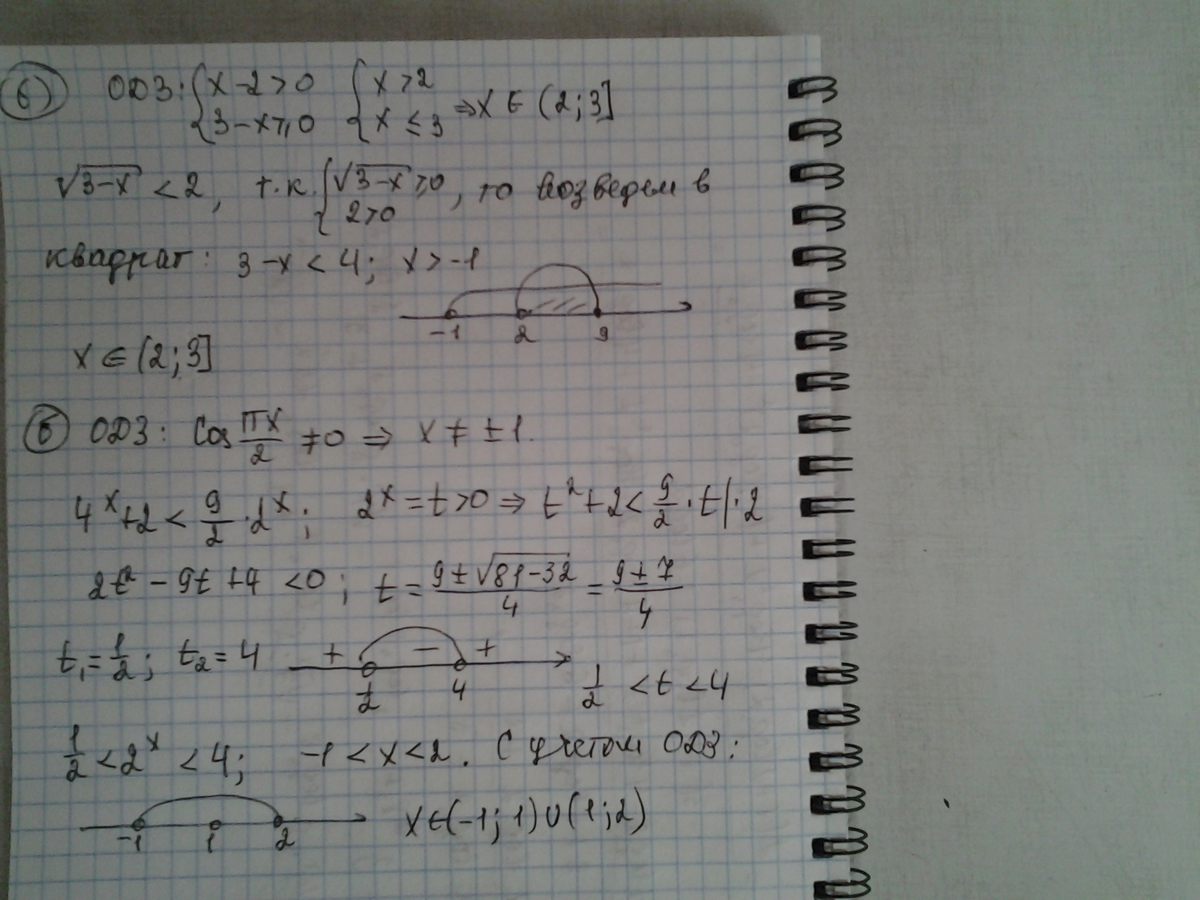 б) ОДЗ: { x-2>0 { x>2
{ 3-x≥0 { x≤3 ⇒ x ∈ (2;3]
√3-x < 2, т.к. { √3-x >0, то возведем в
{ 2>0
квадрат: 3-x < 4; x > -1
-1 2 3
x ∈ (2;3]
в ОДЗ: cos πx/2 ≠ 0 ⇒ x ≠ ±1.
4^x+2 < 9/2 · 2^x; 2^x = t > 0 ⇒ t^2+2 < 9/2 · t |·2
2t^2 - 9t + 4 < 0; t = 9±√81-32/4 = 9±7/4
t₁ = 1/2; t₂ = 4 + - +
1/2 4 1/2 < t < 4
1/2 < 2^x < 4; -1 < x < 2. С учетом ОДЗ:
-1 1 2 x ∈ (-1;1)∪(1;2)